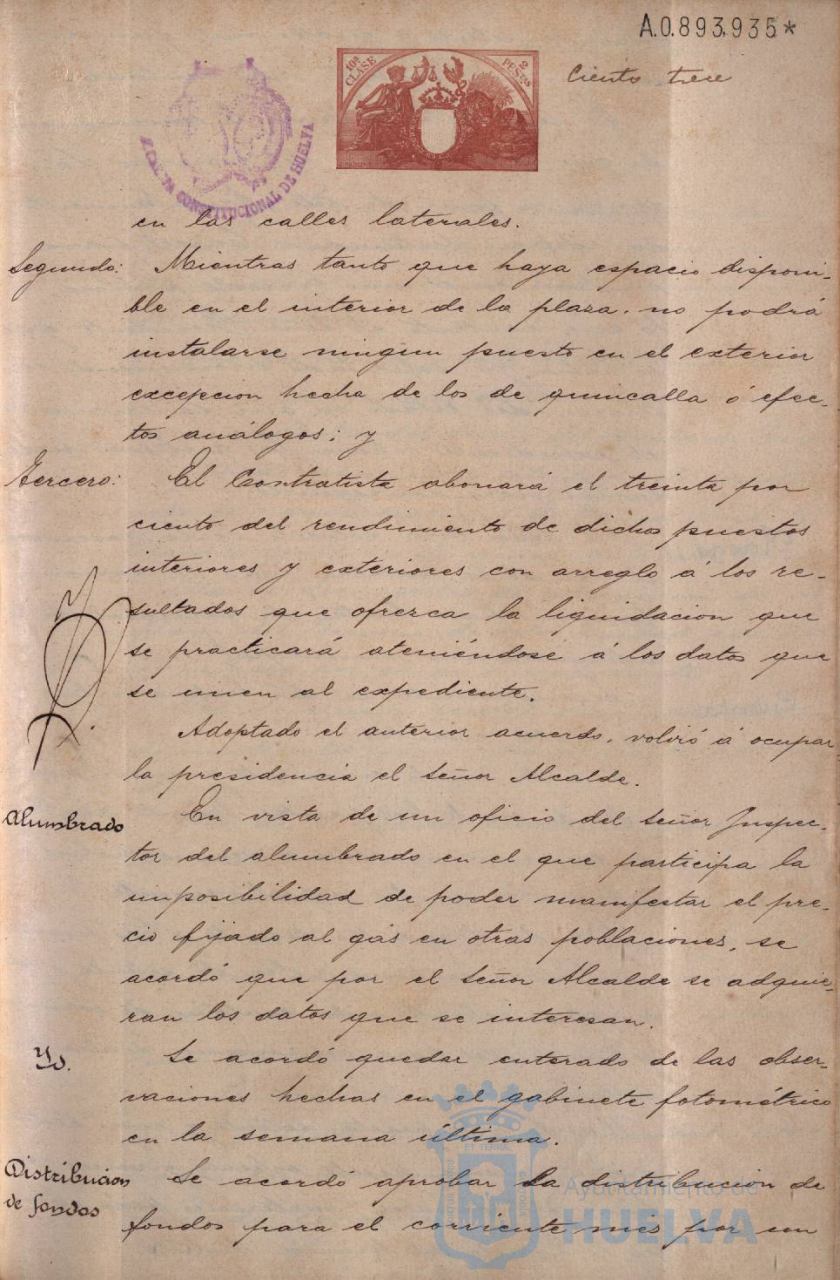 A.0.893,935*
10ª CLASE
2 PESETAS
Ciento trece
CONSTITUCIONAL DE HUELVA
en las calles laterales.
Segundo: Mientras tanto que haya espacio disponi-
ble en el interior de la plaza, no podrá
instalarse ningun puesto en el exterior
excepcion hecha de los de quincalla ó efec-
tos análogos; y
Tercero: El Contratista abonará el treinta por
ciento del rendimiento de dichos puestos
interiores y exteriores con arreglo á los re-
sultados que ofrezca la liquidacion que
se practicará ateniéndose á los datos que
se unen al expediente.
Adoptado el anterior acuerdo, volvió á ocupar
la presidencia el señor Alcalde.
Alumbrado En vista de un oficio del señor Inspec-
tor del alumbrado en el que participa la
imposibilidad de poder manifestar el pre-
cio fijado al gás en otras poblaciones, se
acordó que por el señor Alcalde se adquie-
ran los datos que se interesan.
Yd. Se acordó quedar enterado de las obser-
vaciones hechas en el gabinete fotométrico
en la semana última.
Distribucion Se acordó aprobar la distribucion de
de fondos fondos para el corriente mes por un
Ayuntamiento de
HUELVA